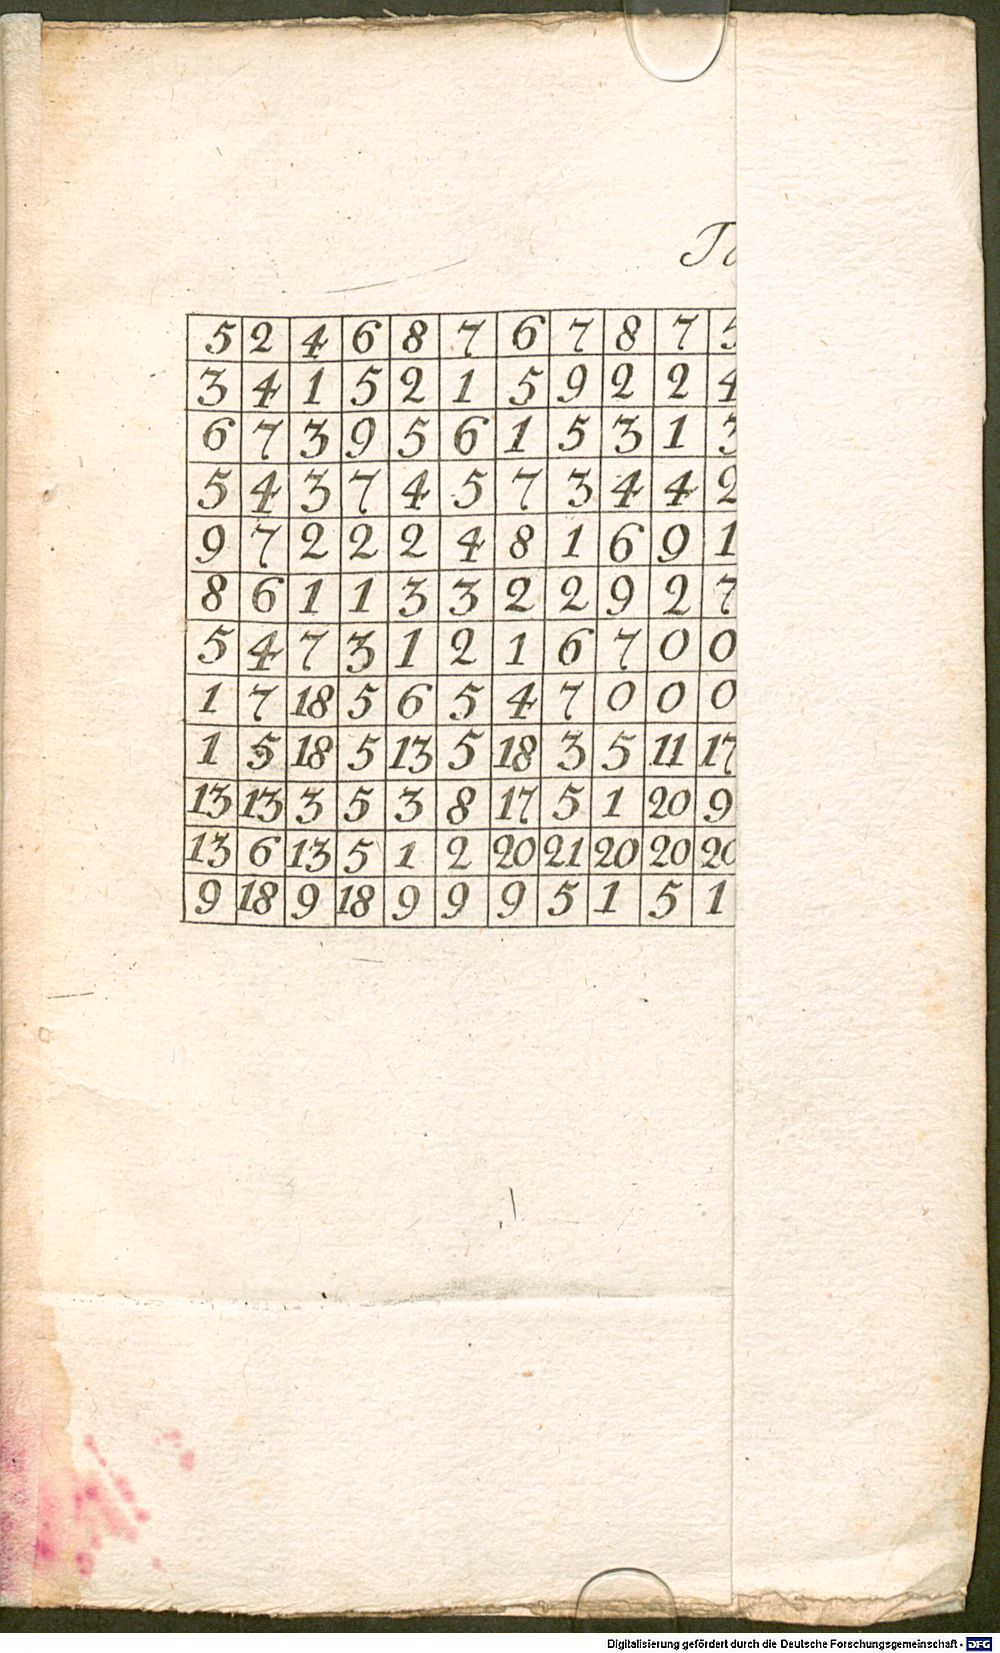 5 2 4 6 8 7 6 7 8 7 5
3 4 1 5 2 1 5 9 2 2 4
6 7 3 9 5 6 1 5 3 1 3
5 4 3 7 4 5 7 3 4 4 2
9 7 2 2 2 4 8 1 6 9 1
8 6 1 1 3 3 2 2 9 2 7
5 4 7 3 1 2 1 6 7 0 0
1 7 18 5 6 5 4 7 0 0 0
1 5 18 5 13 5 18 3 5 11 17
13 13 3 5 3 8 17 5 1 20 9
13 6 13 5 1 2 20 21 20 20 20
9 18 9 18 9 9 9 5 1 5 1
Digitalisierung gefördert durch die Deutsche Forschungsgemeinschaft - DFG